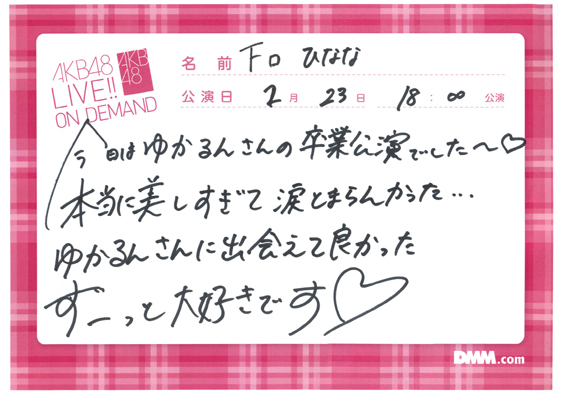 AKB48
LIVE!!
ON DEMAND
AKB
48
名前 下口 ひなな
公演日 2月 23日 18:00 公演
今日はゆかるんさんの卒業公演でした〜♡
本当に美しすぎて涙とまらんかった…
ゆかるんさんに出会えて良かった
ずーっと大好きです♡
DMM.com